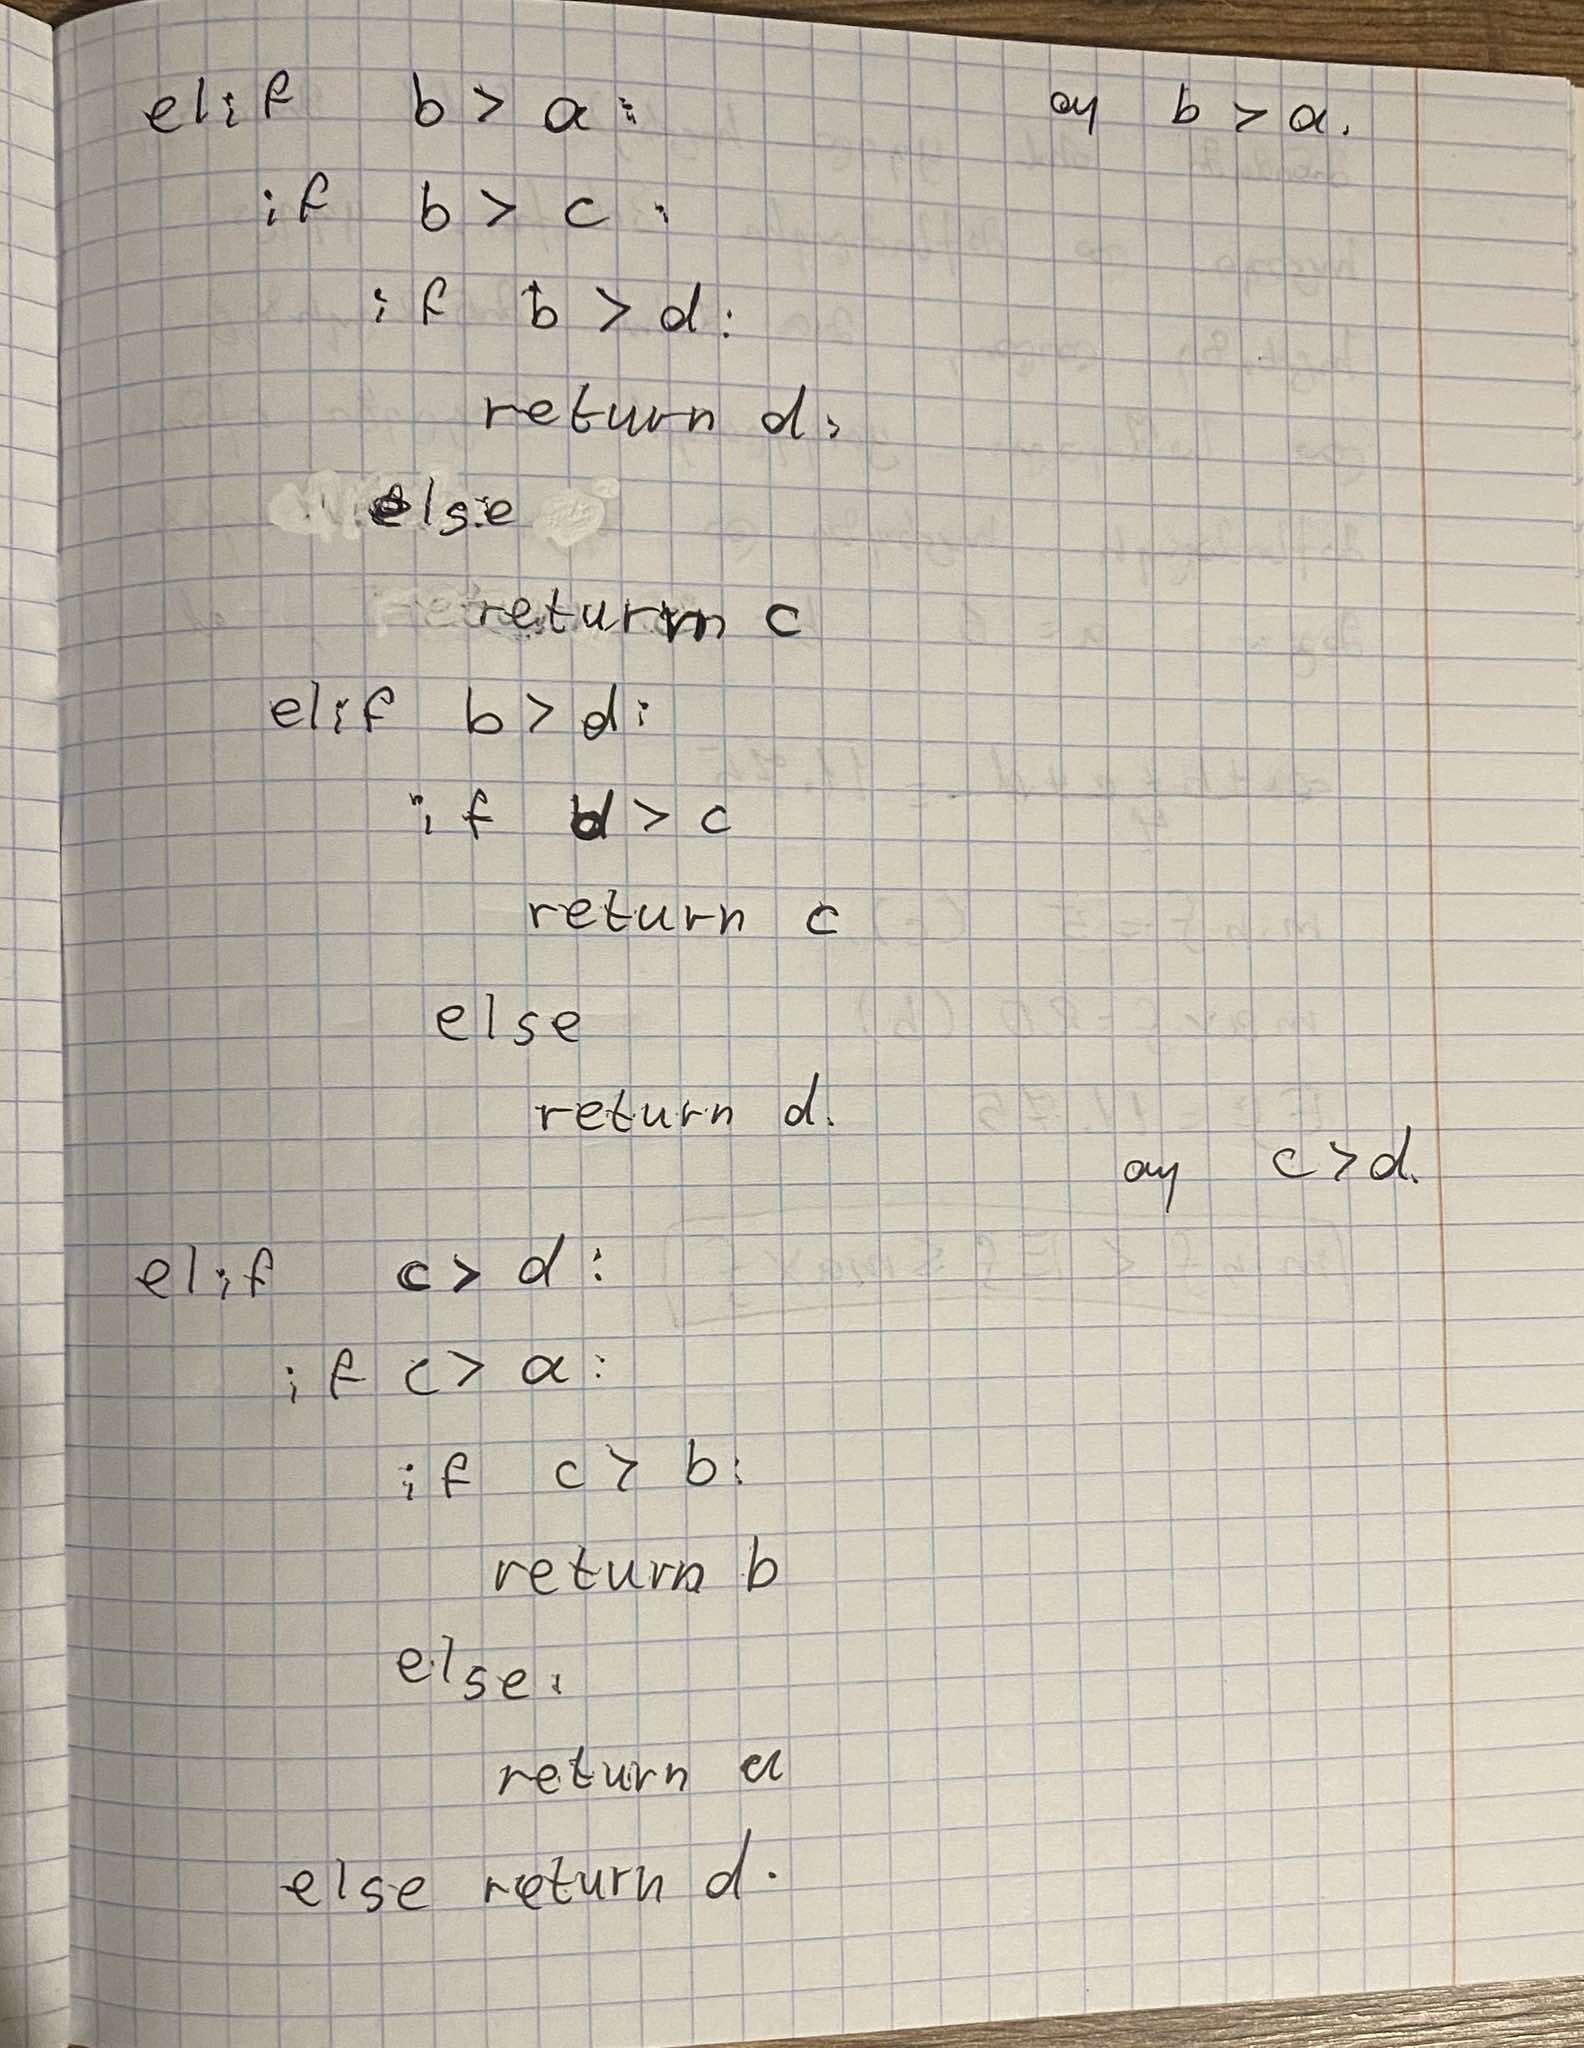 elif b > a:
ay b > a.
if b > c:
if b > d:
return d;
else
return c
elif b > d:
if d > c
return c
else
return d.
ay c > d.
elif c > d:
if c > a:
if c > b:
return b
else:
return a
else return d.